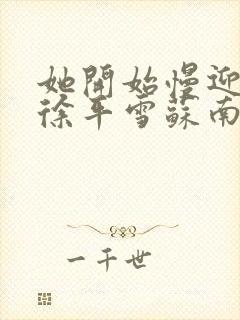 她開始慢迎
徐年雪蘇南
一千世